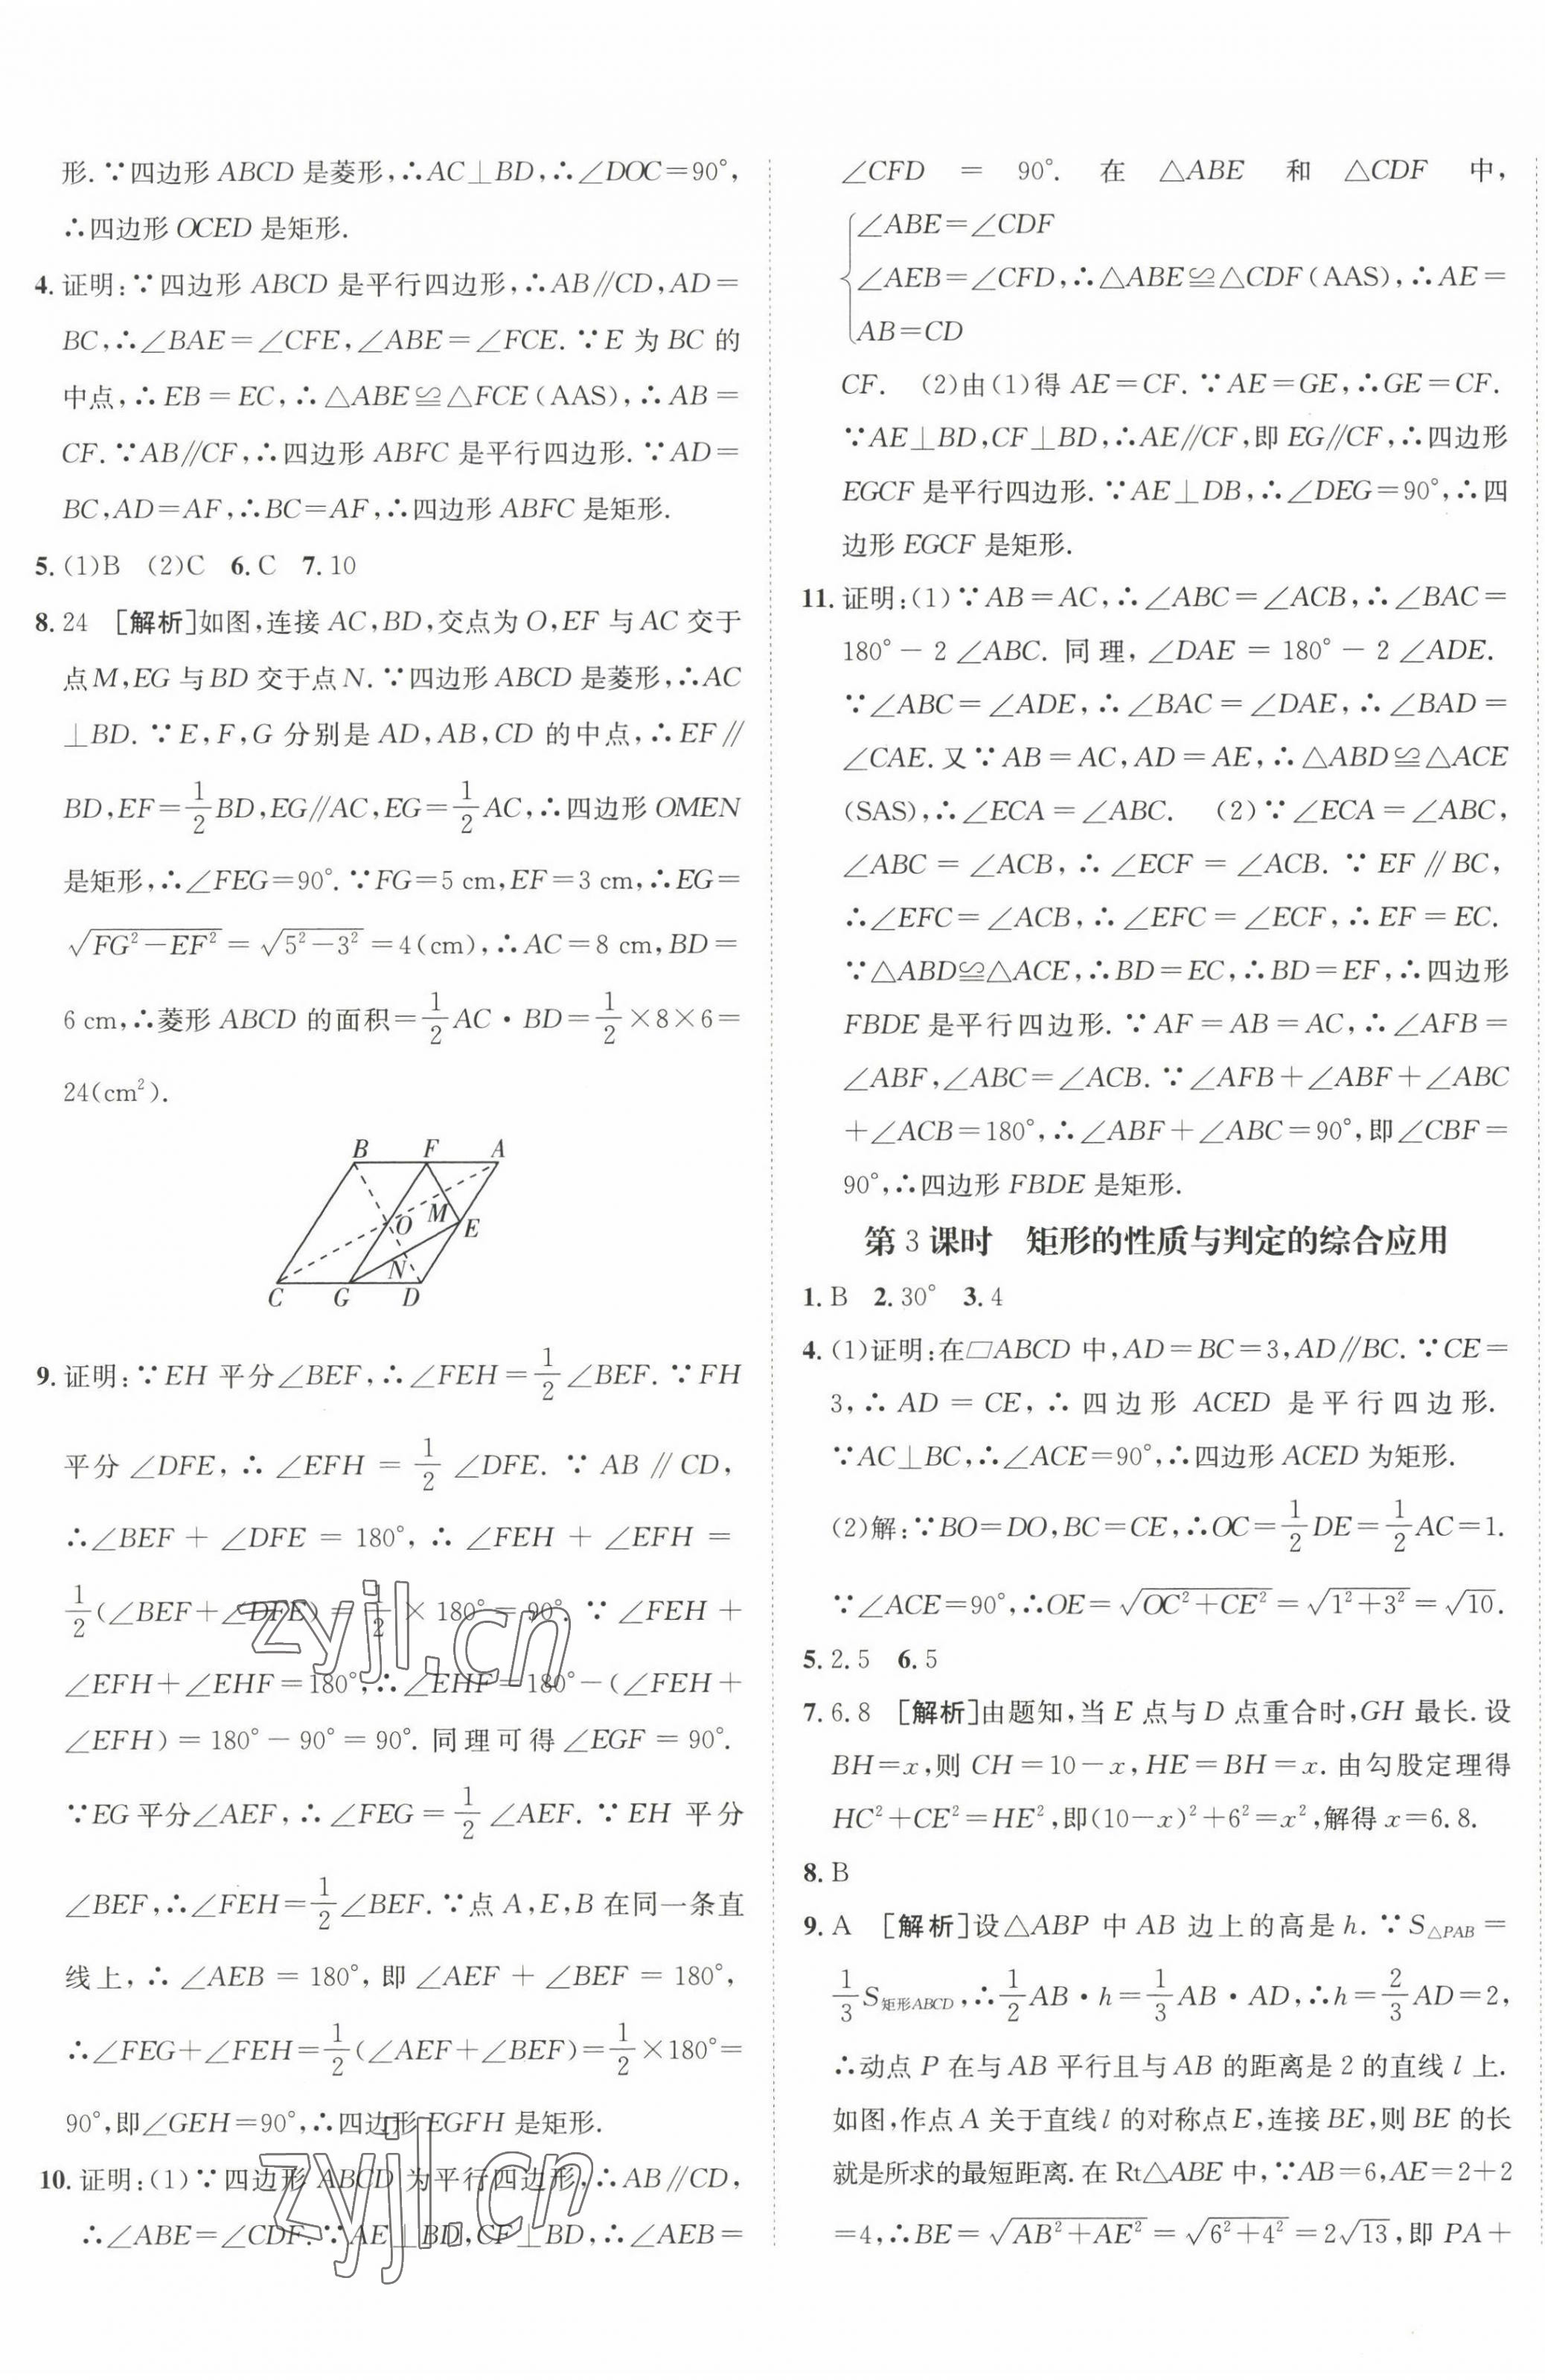 形.∵四边形 ABCD 是菱形,∴AC⊥BD,∴∠DOC=90°,
∴四边形 OCED 是矩形.
4. 证明:∵四边形 ABCD 是平行四边形,∴AB∥CD,AD=
BC,∴∠BAE=∠CFE,∠ABE=∠FCE.∵E 为 BC 的
中点,∴EB=EC,∴△ABE≌△FCE(AAS),∴AB=
CF.∵AB∥CF,∴四边形 ABFC 是平行四边形.∵AD=
BC,AD=AF,∴BC=AF,∴四边形 ABFC 是矩形.
5. (1)B (2)C 6. C 7. 10
8. 24 [解析]如图,连接 AC,BD,交点为 O,EF 与 AC 交于
点 M,EG 与 BD 交于点 N.∵四边形 ABCD 是菱形,∴AC
⊥BD.∵E,F,G 分别是 AD,AB,CD 的中点,∴EF∥
BD,EF=1/2BD,EG∥AC,EG=1/2AC,∴四边形 OMEN
是矩形,∴∠FEG=90°.∵FG=5 cm,EF=3 cm,∴EG=
√(FG²-EF²)=√(5²-3²)=4(cm),∴AC=8 cm,BD=
6 cm,∴菱形 ABCD 的面积=1/2AC·BD=1/2×8×6=
24(cm²).
B F A
O M E
N
C G D
9. 证明:∵EH 平分∠BEF,∴∠FEH=1/2∠BEF.∵FH
平分∠DFE,∴∠EFH=1/2∠DFE.∵AB∥CD,
∴∠BEF+∠DFE=180°,∴∠FEH+∠EFH=
1/2(∠BEF+∠DFE)=1/2×180°=90°.∵∠FEH+
∠EFH+∠EHF=180°,∴∠EHF=180°-(∠FEH+
∠EFH)=180°-90°=90°.同理可得∠EGF=90°.
∵EG 平分∠AEF,∴∠FEG=1/2∠AEF.∵EH 平分
∠BEF,∴∠FEH=1/2∠BEF.∵点 A,E,B 在同一条直
线上,∴∠AEB=180°,即∠AEF+∠BEF=180°,
∴∠FEG+∠FEH=1/2(∠AEF+∠BEF)=1/2×180°=
90°,即∠GEH=90°,∴四边形 EGFH 是矩形.
10. 证明:(1)∵四边形 ABCD 为平行四边形,∴AB∥CD,
∴∠ABE=∠CDF.∵AE⊥BD,CF⊥BD,∴∠AEB=
zyjl.cn
zyjl.cn
∠CFD=90°.在△ABE 和△CDF 中,
∠ABE=∠CDF
∠AEB=∠CFD,∴△ABE≌△CDF(AAS),∴AE=
AB=CD
CF. (2)由(1)得 AE=CF.∵AE=GE,∴GE=CF.
∵AE⊥BD,CF⊥BD,∴AE∥CF,即 EG∥CF,∴四边形
EGCF 是平行四边形.∵AE⊥DB,∴∠DEG=90°,∴四
边形 EGCF 是矩形.
11. 证明:(1)∵AB=AC,∴∠ABC=∠ACB,∴∠BAC=
180°-2∠ABC.同理,∠DAE=180°-2∠ADE.
∵∠ABC=∠ADE,∴∠BAC=∠DAE,∴∠BAD=
∠CAE.又∵AB=AC,AD=AE,∴△ABD≌△ACE
(SAS),∴∠ECA=∠ABC. (2)∵∠ECA=∠ABC,
∠ABC=∠ACB,∴∠ECF=∠ACB.∵EF∥BC,
∴∠EFC=∠ACB,∴∠EFC=∠ECF,∴EF=EC.
∵△ABD≌△ACE,∴BD=EC,∴BD=EF,∴四边形
FBDE 是平行四边形.∵AF=AB=AC,∴∠AFB=
∠ABF,∠ABC=∠ACB.∵∠AFB+∠ABF+∠ABC
+∠ACB=180°,∴∠ABF+∠ABC=90°,即∠CBF=
90°,∴四边形 FBDE 是矩形.
第 3 课时 矩形的性质与判定的综合应用
1. B 2. 30° 3. 4
4. (1)证明:在□ABCD 中,AD=BC=3,AD∥BC.∵CE=
3,∴AD=CE,∴四边形 ACED 是平行四边形.
∵AC⊥BC,∴∠ACE=90°,∴四边形 ACED 为矩形.
(2)解:∵BO=DO,BC=CE,∴OC=1/2DE=1/2AC=1.
∵∠ACE=90°,∴OE=√(OC²+CE²)=√(1²+3²)=√10.
5. 2.5 6. 5
7. 6.8 [解析]由题知,当 E 点与 D 点重合时,GH 最长.设
BH=x,则 CH=10-x,HE=BH=x.由勾股定理得
HC²+CE²=HE²,即(10-x)²+6²=x²,解得 x=6.8.
8. B
9. A [解析]设△ABP 中 AB 边上的高是 h.∵S△PAB=
1/3S矩形ABCD,∴1/2AB·h=1/3AB·AD,∴h=2/3AD=2,
∴动点 P 在与 AB 平行且与 AB 的距离是 2 的直线 l 上.
如图,作点 A 关于直线 l 的对称点 E,连接 BE,则 BE 的长
就是所求的最短距离.在 Rt△ABE 中,∵AB=6,AE=2+2
=4,∴BE=√(AB²+AE²)=√(6²+4²)=2√13,即 PA+